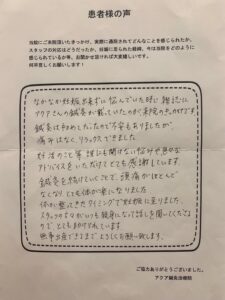 患者様の声
当院にご来院頂いたきっかけ、実際に通院されてどんなことを感じられたか、
スタッフの対応はどうだったか、妊娠に至られた経緯、今は当院をどのように
感じられているか等、お聞かせ頂ければ大変嬉しいです。
何卒宜しくお願いします！
なかなか妊娠出来ずに悩んでいた時に雑誌に
アクアさんの鍼灸が載っていたのが来院のきっかけです。
鍼灸は初めてだったので不安もありましたが、
痛みはなく、リラックスできました。
妊活のこと等誰にも聞けない悩みや色々な
アドバイスをいただけてとても感謝しています。
鍼灸を続けていくことで、頭痛がほとんど
なくなり、とても体が楽になりました。
体が整ってきたタイミングで妊娠に至りました。
スタッフの方々がいつも親身になって話しを聞いてくださる
のでとても助けられています。
無事出産できるまでよろしくお願い致します。
ご協力ありがとうございました。
アクア鍼灸治療院